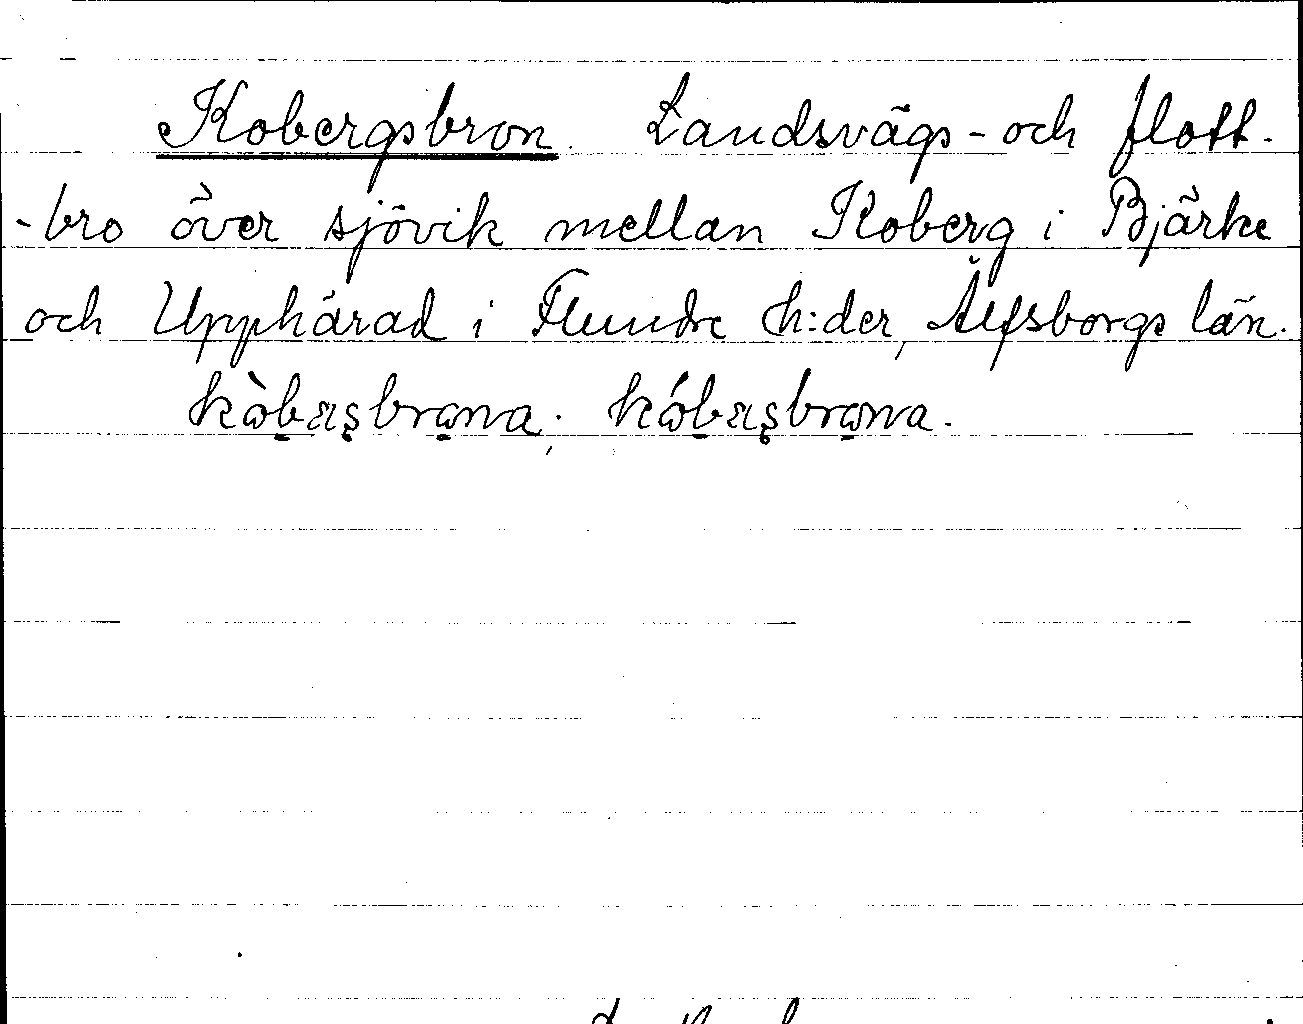 Kobergsbron. Landsvägs- och flott-
-bro över sjövik mellan Koberg i Bjärke
och Upphärad i Flundre h:der, Älfsborgs län.